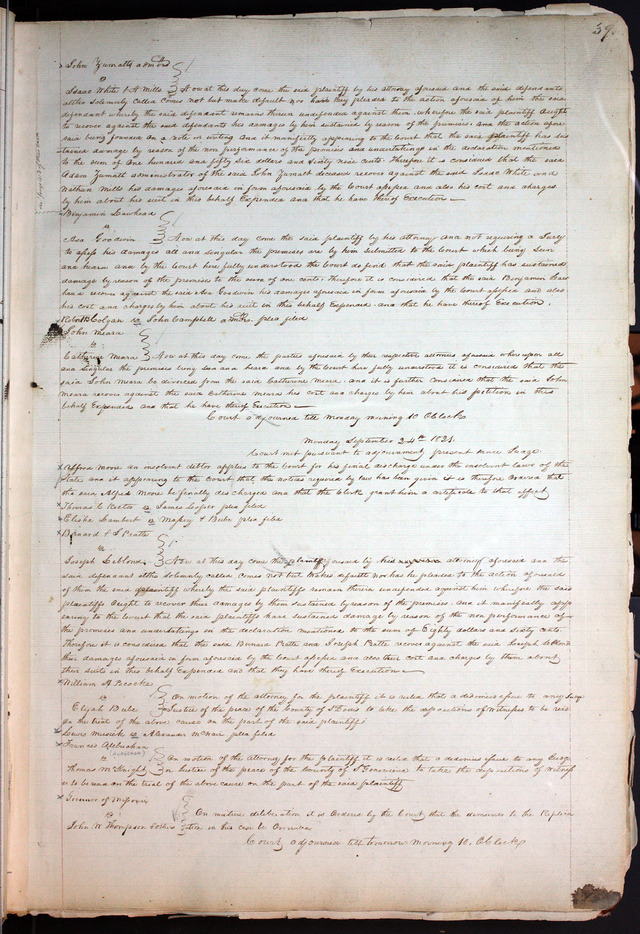 39.
John Zumalt admr
vs
Isaac White & N Mills Now at this day come the said plaintiff by his attorney aforesaid and the said defendants
altho Solemnly called Comes not but make default nor have they pleaded to the action aforesaid of him the said
defendant whereby the said defendant remains therein undefended against them, wherefore the said plaintiff ought
to recover against the said defendants his damages by him sustained by reason of the premises and the action afore
said being founded on a note in writing and it manifestly appearing to the Court that the said plaintiff has sus
tained damage by reason of the non performance of the promises and undertakings in the declaration mentioned
to the sum of one hundred and fifty six dollars and sixty nine cents. Therefore it is considered that the said
Adam Zumalt administrator of the said John Zumalt deceased recover against the said Isaac White and
Nathan Mills his damages aforesaid in form aforesaid by the Court assessed and also his cost and charges
by him about his suit in this behalf Expended and that he have thereof Execution
Benjamin Lawhead
vs
Asa Goodwin Now at this day come the said plaintiff by his attorney and not requiring a Jury
to assess his damages all and singular the premises are by him submitted to the Court which being seen
and heard and by the Court here fully understood the Court do find that the said plaintiff has sustained
damage by reason of the premises to the sum of one cent. Therefore it is considered that the said Benjamin Law
head recover against the said Asa Goodwin his damages aforesaid in form aforesaid by the Court assessed and also
his cost and charges by him about his suit on this behalf Expended and that he have thereof Execution.
Colgan vs John Campbell admr. plea filed
John Meara
vs
Catherine Meara Now at this day come the parties aforesaid by their respective attornies aforesaid whereupon all
and singular the premises being seen and heard and by the Court here fully understood it is considered that the
said John Meara be divorced from the said Catherine Meara. and it is further considered that the said John
Meara recover against the said Catherine Meara his cost and charges by him about his petition in this
behalf Expended and that he have thereof Execution
Court adjourned till Monday morning 10 OClock
Monday September 24th 1821.
Court met pursuant to adjournment present same Judge.
Alfred More an insolvent debtor applies to the Court for his final discharge under the insolvent laws of this
State and it appearing to the Court that the notices required by law has been given it is therefore ordered that
the said Alfred More be finally discharged and that the Clerk grant him a certificate to that effect
Thomas C Rector vs James Cooper plea filed
Elisha Lambert vs & Bube plea filed
Bernard & J Pratte
vs
Joseph Leblond Now at this day come the plaintiff aforesaid by their attorney aforesaid and the
said defendant altho solemnly called Comes not but makes default nor has he pleaded to the action aforesaid
of them the said plaintiff whereby the said plaintiffs remain therein undefended against him wherefore the said
plaintiffs ought to recover their damages by them sustained by reason of the premises. and it manifestly appe
earing to the Court that the said plaintiffs have sustained damage by reason of the non performance of
the promises and undertakings in the declaration mentioned to the sum of Eighty dollars and sixty cents.
Therefore it is considered that the said Bernard Pratte and Joseph Pratte recover against the said Joseph Leblond
their damages aforesaid in form aforesaid by the Court assessed and also their cost and charges by them about
their suits in this behalf Expended and that they have thereof Execution
William A Peacocke
vs
Elijah Bube On motion of the attorney for the plaintiff it is ruled that a dedimus issue to any Judge
Justice of the peace of the County of St Louis to take the depositions of Witnesses to be read
on the trial of the above cause on the part of the said plaintiff.
Lewis Musick vs Alexander McNair plea filed
Francis
vs
Thomas McKnight On motion of the Attorney for the plaintiff it is ruled that a dedimus issue to any Judge
or Justice of the peace of the County of St Genevieve to take the depositions of Witness
to be read on the trial of the above cause on the part of the said plaintiff
Governor of Missouri
vs
John W Thompson & others On mature deliberation it is Ordered by the Court that the demurrer to the Replica
tion in his case be Overruled
Court adjourned till tomorrow Morning 10. OClock